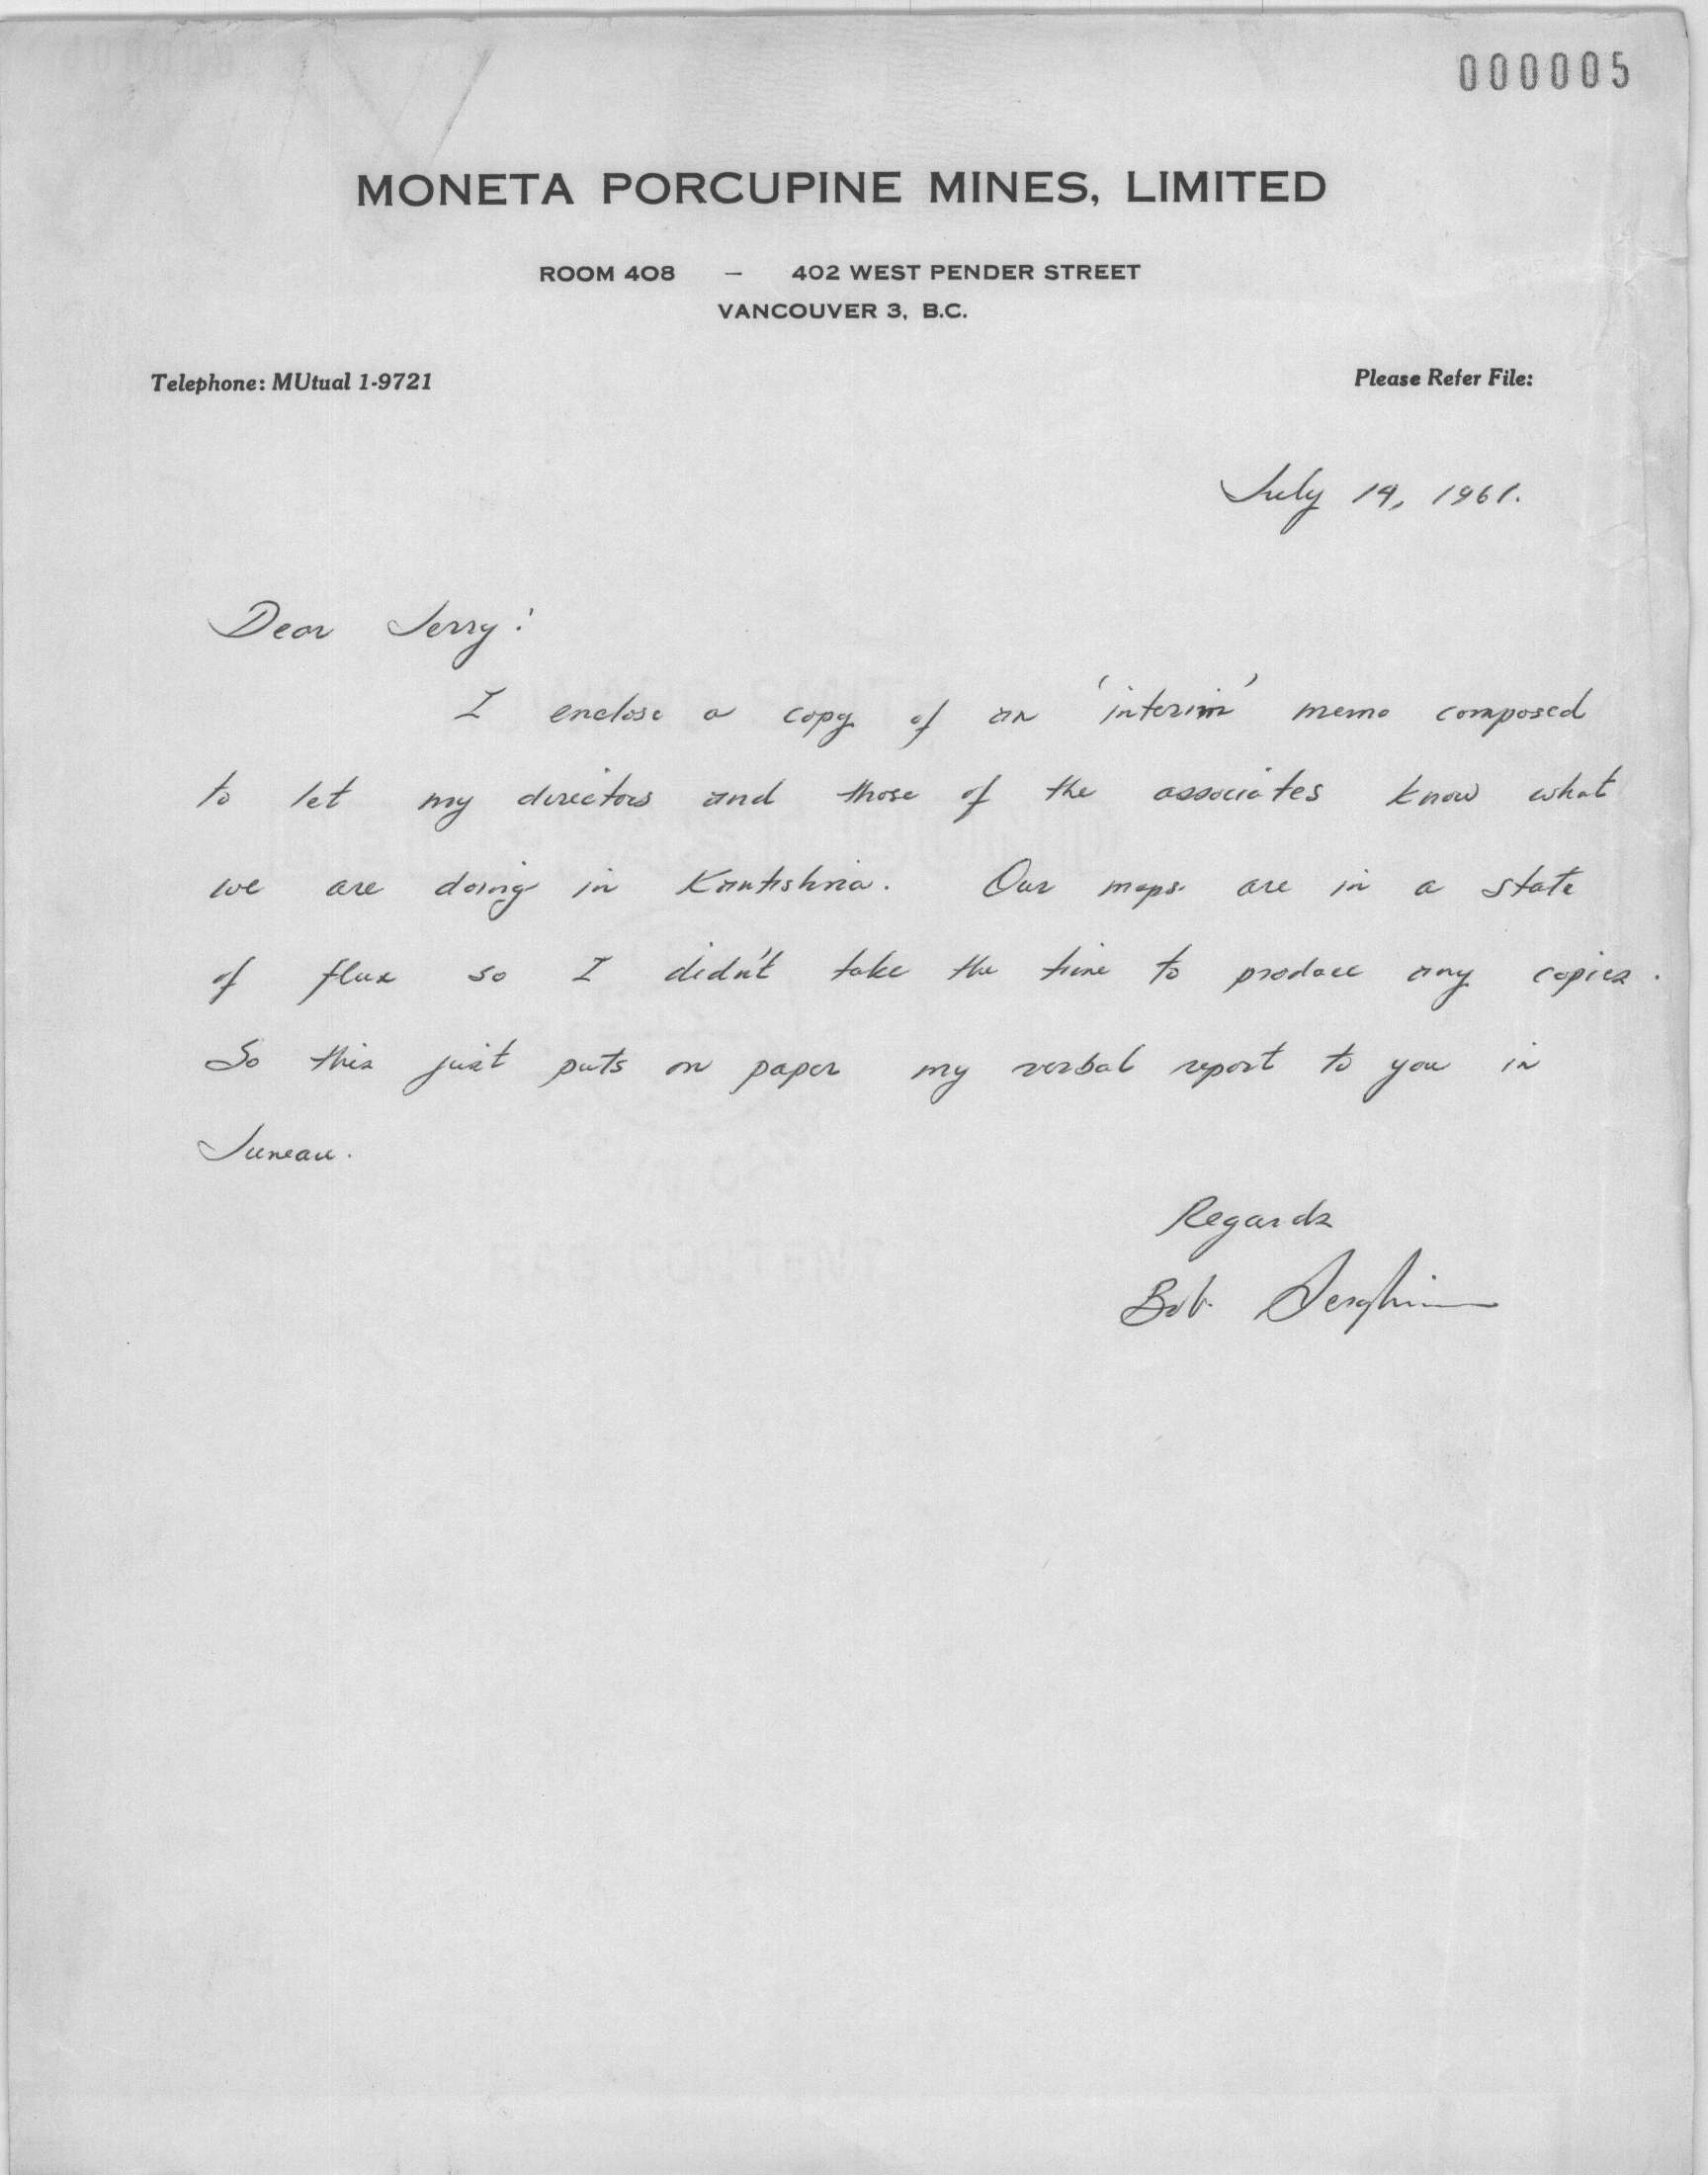 000005
MONETA PORCUPINE MINES, LIMITED
ROOM 408 — 402 WEST PENDER STREET
VANCOUVER 3, B.C.
Telephone: MUtual 1-9721
Please Refer File:
July 19, 1961.
Dear Jerry:
I enclose a copy of an 'interim' memo composed
to let my directors and those of the associates know what
we are doing in Kantishna. Our maps are in a state
of flux so I didn't take the time to produce any copies.
So this just puts on paper my verbal report to you in
Juneau.
Regards
Bob